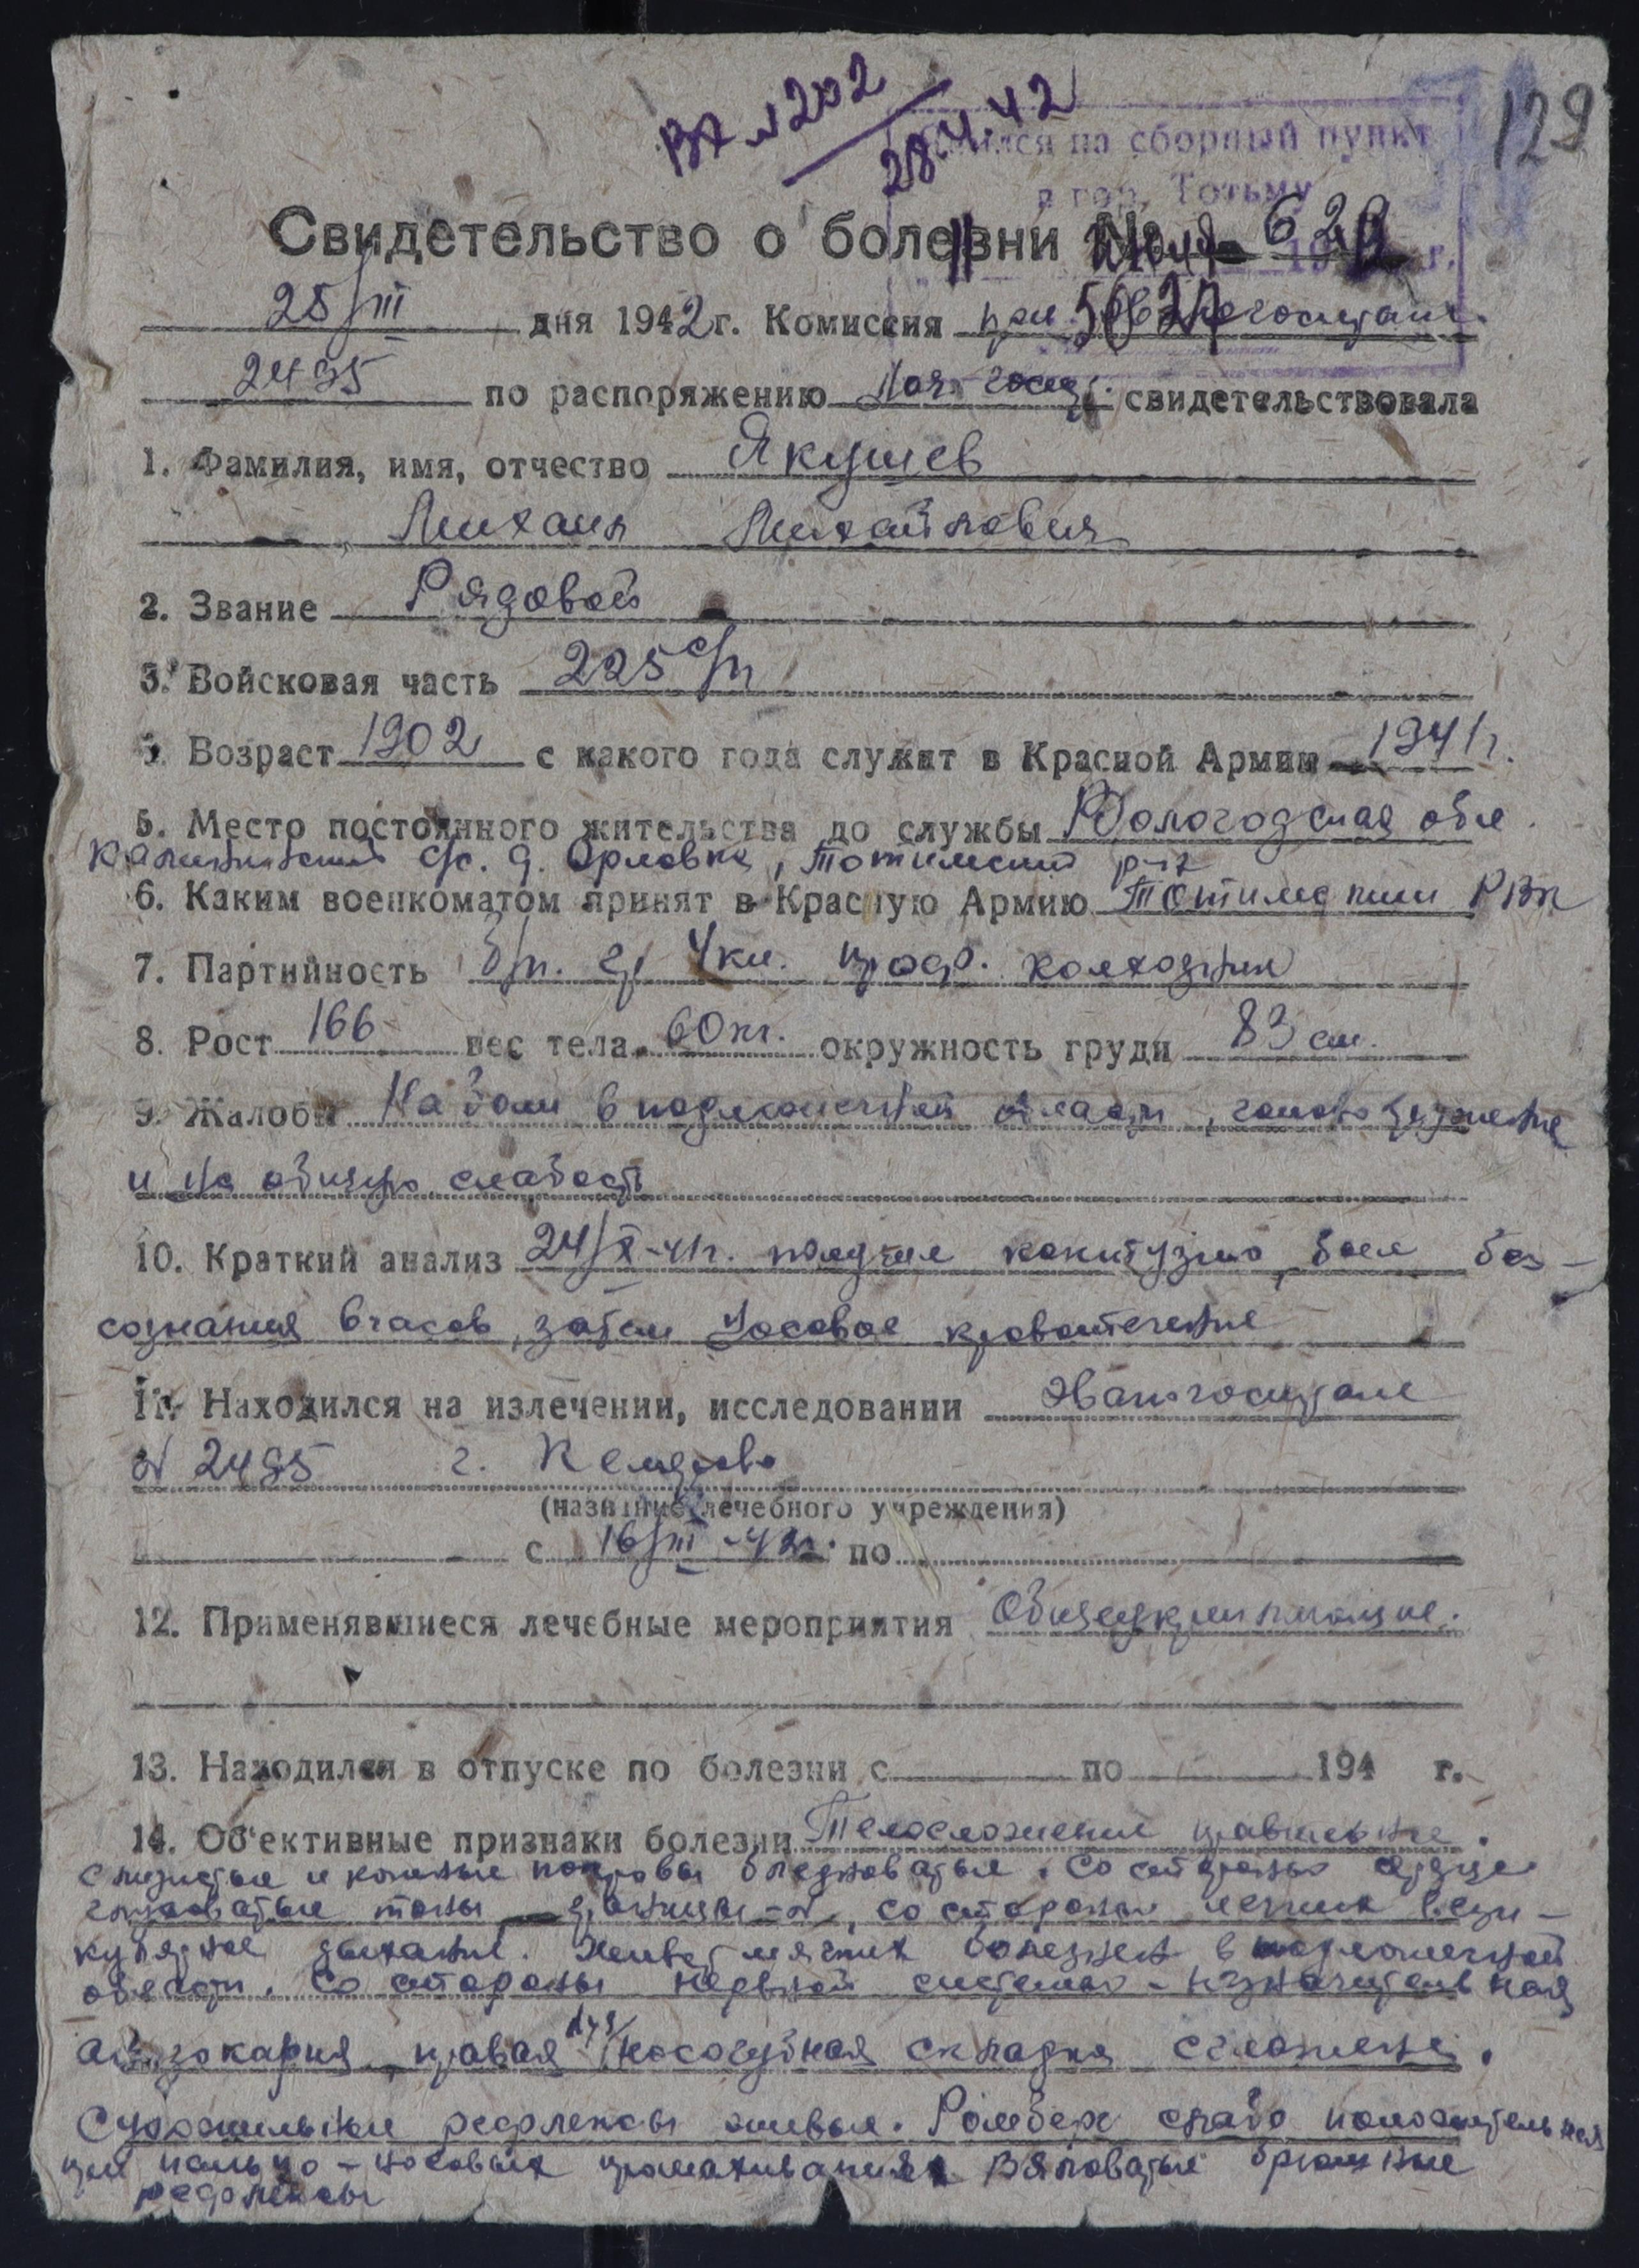 ВХ №202
28.4.42
129
явился на сборный пункт
в гор. Тотьму
Свидетельство о болезни № 629
25/III дня 1942 г. Комиссия при эвакогоспитал.
2495 по распоряжению Нач. госп. свидетельствовала
1. Фамилия, имя, отчество Якушев
Михаил Михайлович
2. Звание Рядовой
3. Войсковая часть 225 с/п
5. Возраст 1902 с какого года служит в Красной Армии 1941 г.
5. Место постоянного жительства до службы Вологодская обл.
Калининский с/с. д. Орловка, Тотемский р-н
6. Каким военкоматом принят в Красную Армию Тотемским РВК
7. Партийность б/п. гр 4 кл. проф. колхозник
8. Рост 166 вес тела 60 кг. окружность груди 83 см.
9. Жалобы На боли в подложечной области, головокружение
и на общую слабость
10. Краткий анализ 24/X-41г. получил контузию, был без-
сознания 6 часов, затем носовое кровотечение
11. Находился на излечении, исследовании Эвакогоспитале
№ 2495 г. Кемерово
(название лечебного учреждения)
с 16/III-42г. по
12. Применявшиеся лечебные мероприятия Общеукрепляющие.
13. Находился в отпуске по болезни с по 194 г.
14. Об'ективные признаки болезни Телосложение правильное.
слизистые и кожные покровы бледноватые. Со стороны сердца
глуховатые тоны, границы - N, со стороны легких вези-
кулярное дыхание. Живот мягкий болезнен в подложечной
области. Со стороны нервной системы - незначительная
правая носогубная складка сглажена.
Сухожильные рефлексы живые. Ромберг слабо положительный
при пальце-носовых промахивания. Вяловатые брюшные
рефлексы